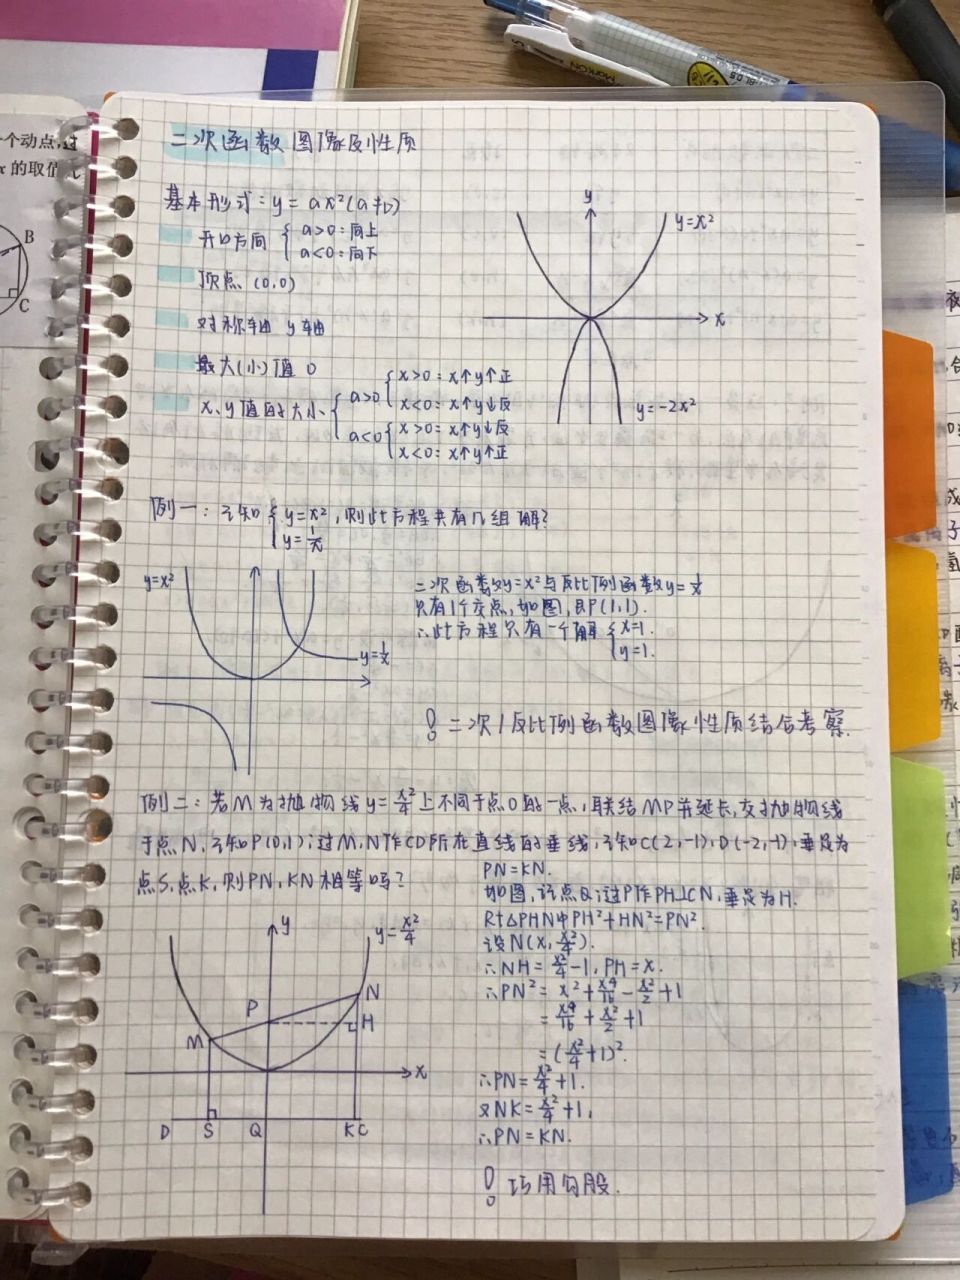 二次函数图像及性质
基本形式：y = ax²(a≠0)
开口方向 { a>0：向上
a<0：向下
顶点 (0,0)
对称轴 y轴
最大(小)值 0
x、y值的大小 { a>0 { x>0：x↑y↑正
x<0：x↑y↓反
a<0 { x>0：x↑y↓反
x<0：x↑y↑正
y
y=x²
x
y=-2x²
例一：已知 { y=x²，则此方程共有几组解？
y=1/x
y=x²
y=1/x
二次函数y=x²与反比例函数y=1/x
只有1个交点，如图，即P(1,1).
∴此方程只有一个解 { x=1.
y=1.
! 二次/反比例函数图像性质结合考察.
例二：若M为抛物线y=x²/4上不同于点O的一点，联结MP并延长，交抛物线
于点N，已知P(0,1)；过M、N作CD所在直线的垂线，已知C(2,-1)，D(-2,-1)，垂足为
点S、点K，则PN、KN相等吗？
PN=KN.
如图，记点Q；过P作PH⊥CN，垂足为H.
Rt△PHN中PH²+HN²=PN².
设N(x, x²/4).
∴NH=x²/4-1，PH=x.
∴PN²=x²+x⁴/16-x²/2+1
=x⁴/16+x²/2+1
=(x²/4+1)².
∴PN=x²/4+1.
又NK=x²/4+1，
∴PN=KN.
! 巧用勾股.
y
y=x²/4
P
N
H
M
x
D
S
Q
K
C
个动点，过
x 的取值
B
C